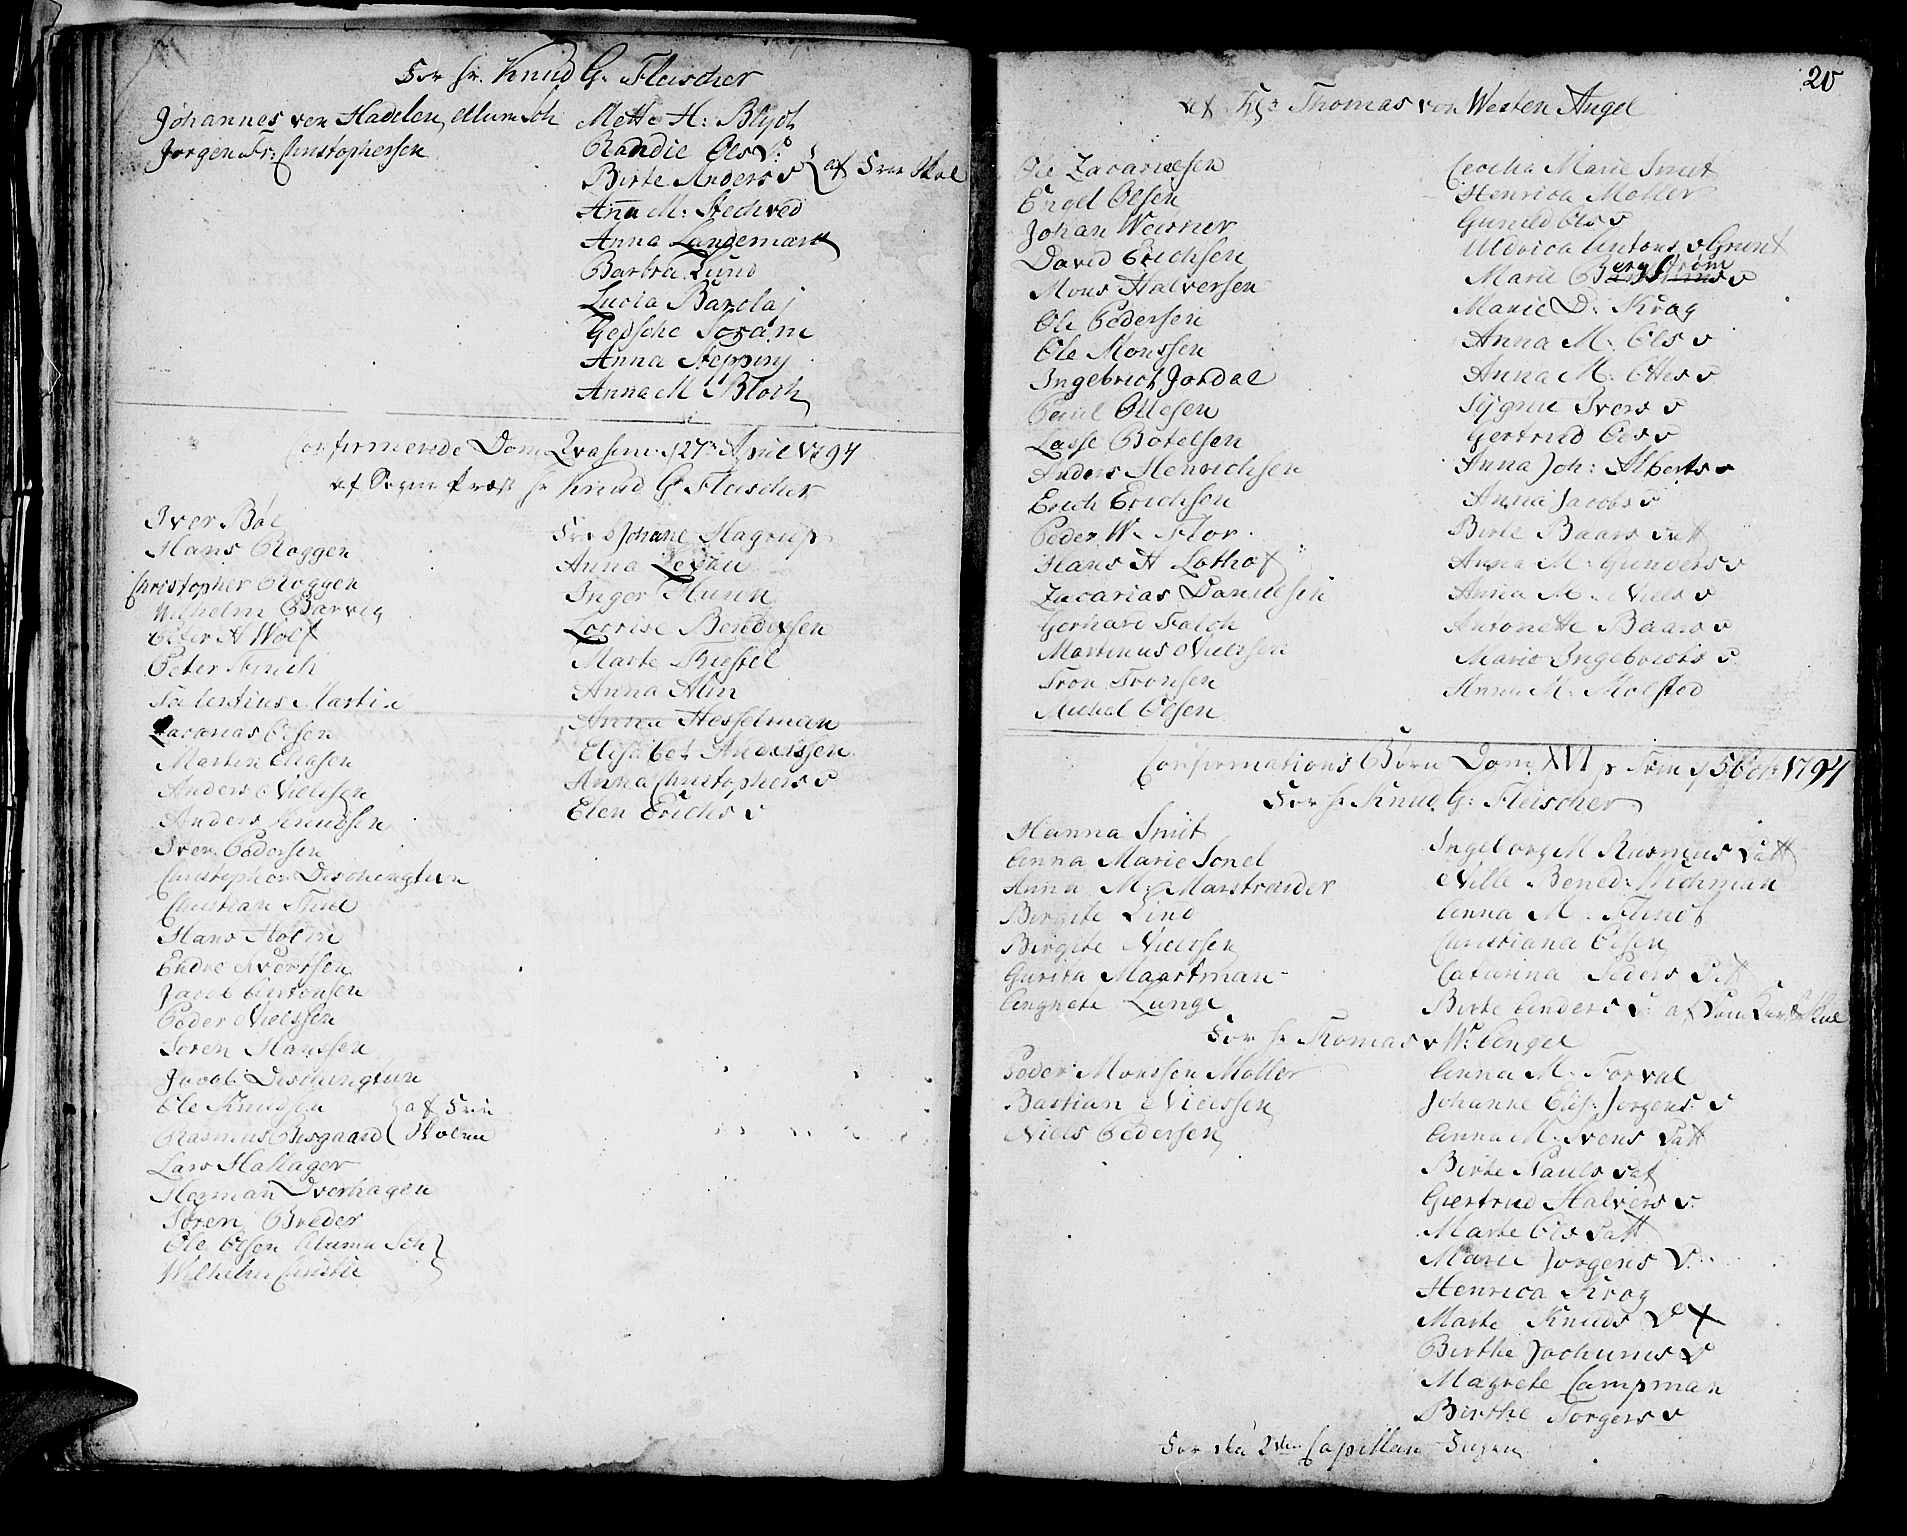 For Hr. Knud G. Fleischer
Johannes von Hadelen, Alum Sch
Jørgen Fr: Christophersen
Mette H: Blydt
Randie Ols D:
Birte Anders D af Frue Skol
Anna M: Stechved
Anna Landemark
Barbra Lund
Lucia Barclaj
Gepsche
Anna Stepping
Anna M Bloch
Confirmerede Dom Qvasim: d 27de April 1794
af Sogne Præst Hr Knud G Fleischer
Iver Bøe
Hans Roggen
Christopher Roggen
Wilhelm Garvig
Peter H Wolf
Peter
Valentius Martin
Zacarias Olsen
Martin Eliasen
Anders Nielsen
Anders Knudsen
Iver Pedersen
Christopher Dischengtun
Christian Thiel
Hans Holm
Endre Sivertsen
Jacob Antonsen
Peder Nielssen
Søren Hanssen
Jacob Dischengtun
Ole Knudsen
Rasmus Bisgaard
af Frue Skolen
Lars Hakager
Herman Overhagen
Søren Breder
Ole Olsen Alumn Sch
Wilhelm Christie
Johane Hagrup
Anna
Inger Thunn
Lovise Bendixsen
Marte
Anna Alm
Anna Hesselman
Elisabet Anderssen
Anna Christophers D
Elen Erichs D
20
af Hr Thomas von Westen Angel
Ole Zacariesen
Enoll Olsen
Johan Werner
David Erichsen
Mons Halversen
Ole Pedersen
Ole Monssen
Ingebrict Jordal
Paul Ottesen
Lasse Botelsen
Anders Henrichsen
Erich Erichsen
Peder W. Flor
Hans H Lothof
Zacarias Danielsen
Gerhard Falch
Martinus Nielssen
Tron Tronsen
Michel Olsen
Cecilia Marie Smit
Henrica Møller
Gunild Ols D
Uldrica Antons D Grunt
Marie Bergstrøm
Marie D: Krog
Anna M. Ols D
Anna M: Ottes D
Sygnie Ivers D
Gertrud Ols D
Anna Joh: Alberts D
Anna Jacobs D
Birte Baars Datt
Anna M: Gunders D
Anna M. Niels D
Antonette Baars D
Marie Ingebricts D
Anna M: Molsted
Confirmations Børn Dom XVI p Trin d 5 Oct: 1794
For Hr Knud G: Fleischer
Hanna Smit
Anna Marie Sonel
Anna M: Marstrander
Birgite Lind
Birgite Nielssen
Gurita Maartman
Angnete Lunge
Ingeborg M Rasmus Datt
Nille Bened: Wichman
Anna M. Flindt
Christiana Olsen
Catarina Peders Datt
Birte Anders D: af Dom Kirk Skol
For Hr Tomas v W: Angel
Peder Monssen Møller
Bastian Nielssen
Niels Pedersen
Anna M. Forval
Johanne Elis: Jørgens D
Anna M. Ivens Datt
Birte Pauls Dat
Giertrud Halvers D
Marte Ols Datt
Marie Jørgens D:
Henrica Krog
Marte Knuds D
Birthe Jochums D
Magrete Campman
Birthe Torgers D
For den 2den Capellan Ingen